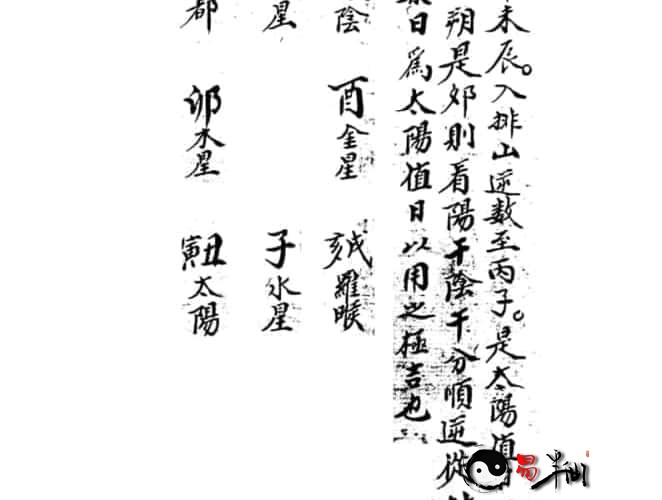 未辰。入排山逆数至丙子。是太陽值
朔是郊則看陽干陰干分順逆從
日爲太陽值日以用之極吉也
陰 酉金星 戌亥羅睺
星 子水星
都 卯水星 丑寅太陽
易半仙